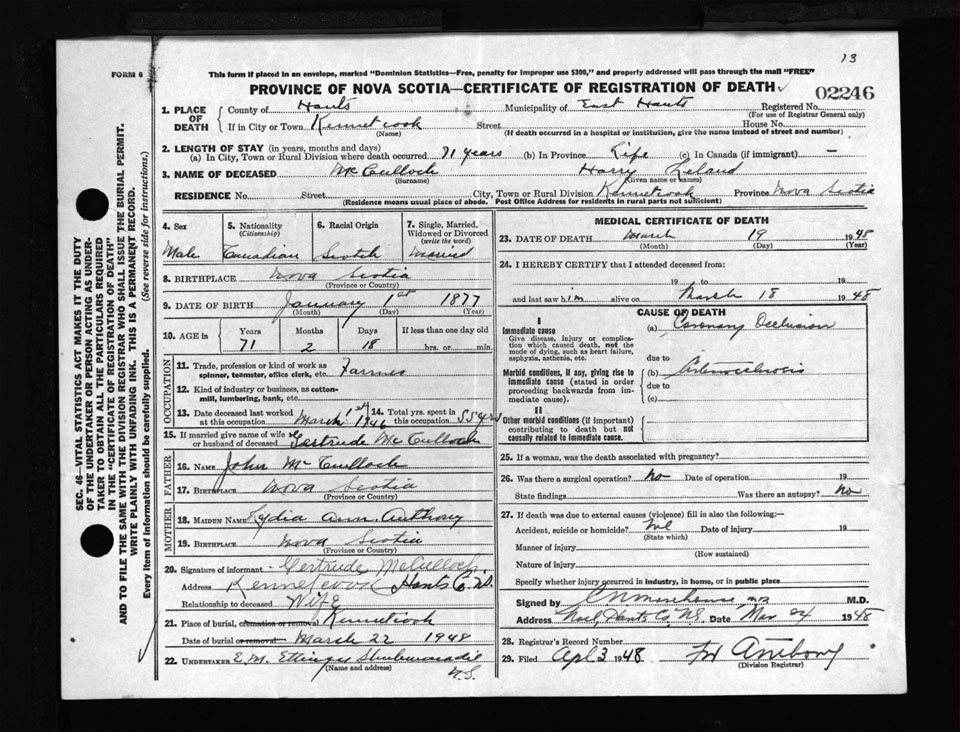 13
FORM 6
This form if placed in an envelope, marked "Dominion Statistics—Free, penalty for improper use $300," and properly addressed will pass through the mail "FREE"
PROVINCE OF NOVA SCOTIA—CERTIFICATE OF REGISTRATION OF DEATH
02246
1. PLACE OF DEATH { County of Hants Municipality of East Hants Registered No.
(For use of Registrar General only)
If in City or Town Kennetcook Street House No.
(Name) (If death occurred in a hospital or institution, give the name instead of street and number)
2. LENGTH OF STAY (in years, months and days)
(a) In City, Town or Rural Division where death occurred 71 years (b) In Province Life (c) In Canada (if immigrant) —
3. NAME OF DECEASED McCulloch Harry Leland
(Surname) (Given name or names)
RESIDENCE No. Street City, Town or Rural Division Kennetcook Province Nova Scotia
(Residence means usual place of abode. Post Office Address for residents in rural parts not sufficient)
SEC. 46—VITAL STATISTICS ACT MAKES IT THE DUTY
OF THE UNDERTAKER OR PERSON ACTING AS UNDER-
TAKER TO OBTAIN ALL THE PARTICULARS REQUIRED
IN THE "CERTIFICATE OF REGISTRATION OF DEATH"
AND TO FILE THE SAME WITH THE DIVISION REGISTRAR WHO SHALL ISSUE THE BURIAL PERMIT.
WRITE PLAINLY WITH UNFADING INK. THIS IS A PERMANENT RECORD.
Every item of information should be carefully supplied. (See reverse side for instructions.)
4. Sex 5. Nationality (Citizenship) 6. Racial Origin 7. Single, Married, Widowed or Divorced (write the word)
Male Canadian Scotch Married
8. BIRTHPLACE Nova Scotia
(Province or Country)
9. DATE OF BIRTH January 1st 1877
(Month) (Day) (Year)
10. AGE in { Years Months Days If less than one day
71 2 18 hrs. or min.
OCCUPATION
11. Trade, profession or kind of work as
spinner, teamster, office clerk, etc. Farmer
12. Kind of industry or business, as cotton-
mill, lumbering, bank, etc.
13. Date deceased last worked at this occupation March 1st 1946 14. Total yrs. spent in this occupation 55 yrs
15. If married give name of wife or husband of deceased Gertrude McCulloch
FATHER
16. NAME John McCulloch
17. BIRTHPLACE Nova Scotia
(Province or Country)
MOTHER
18. MAIDEN NAME Lydia Ann Anthony
19. BIRTHPLACE Nova Scotia
(Province or Country)
20. Signature of informant Gertrude McCulloch
Address Hants Co. N.S.
Relationship to deceased Wife
21. Place of burial, cremation or removal Kennetcook
Date of burial or removal March 22 1948
22. UNDERTAKER E. M. Ettinger Shubenacadie
(Name and address) N.S.
MEDICAL CERTIFICATE OF DEATH
23. DATE OF DEATH March 19 1948
(Month) (Day) (Year)
24. I HEREBY CERTIFY that I attended deceased from:
19 to 19
and last saw him alive on March 18 1948
CAUSE OF DEATH
I
Immediate cause
Give disease, injury or complica-
tion which caused death, not the
mode of dying, such as heart failure,
asphyxia, asthenia, etc.
(a) Coronary Occlusion
due to
Morbid conditions, if any, giving rise to
immediate cause (stated in order
proceeding backwards from im-
mediate cause).
(b) Arteriosclerosis
due to
(c)
II
Other morbid conditions (if important)
contributing to death but not
causally related to immediate cause.
25. If a woman, was the death associated with pregnancy?
26. Was there a surgical operation? No Date of operation 19
State findings Was there an autopsy? No
27. If death was due to external causes (violence) fill in also the following:—
Accident, suicide or homicide? Date of injury 19
(State which)
Manner of injury
(How sustained)
Nature of injury
Specify whether injury occurred in industry, in home, or in public place
Signed by C N Morehouse M.D.
Address Noel, Hants Co, N.S. Date Mar 24 1948
28. Registrar's Record Number
29. Filed Apl 3 1948 Anthony
(Division Registrar)